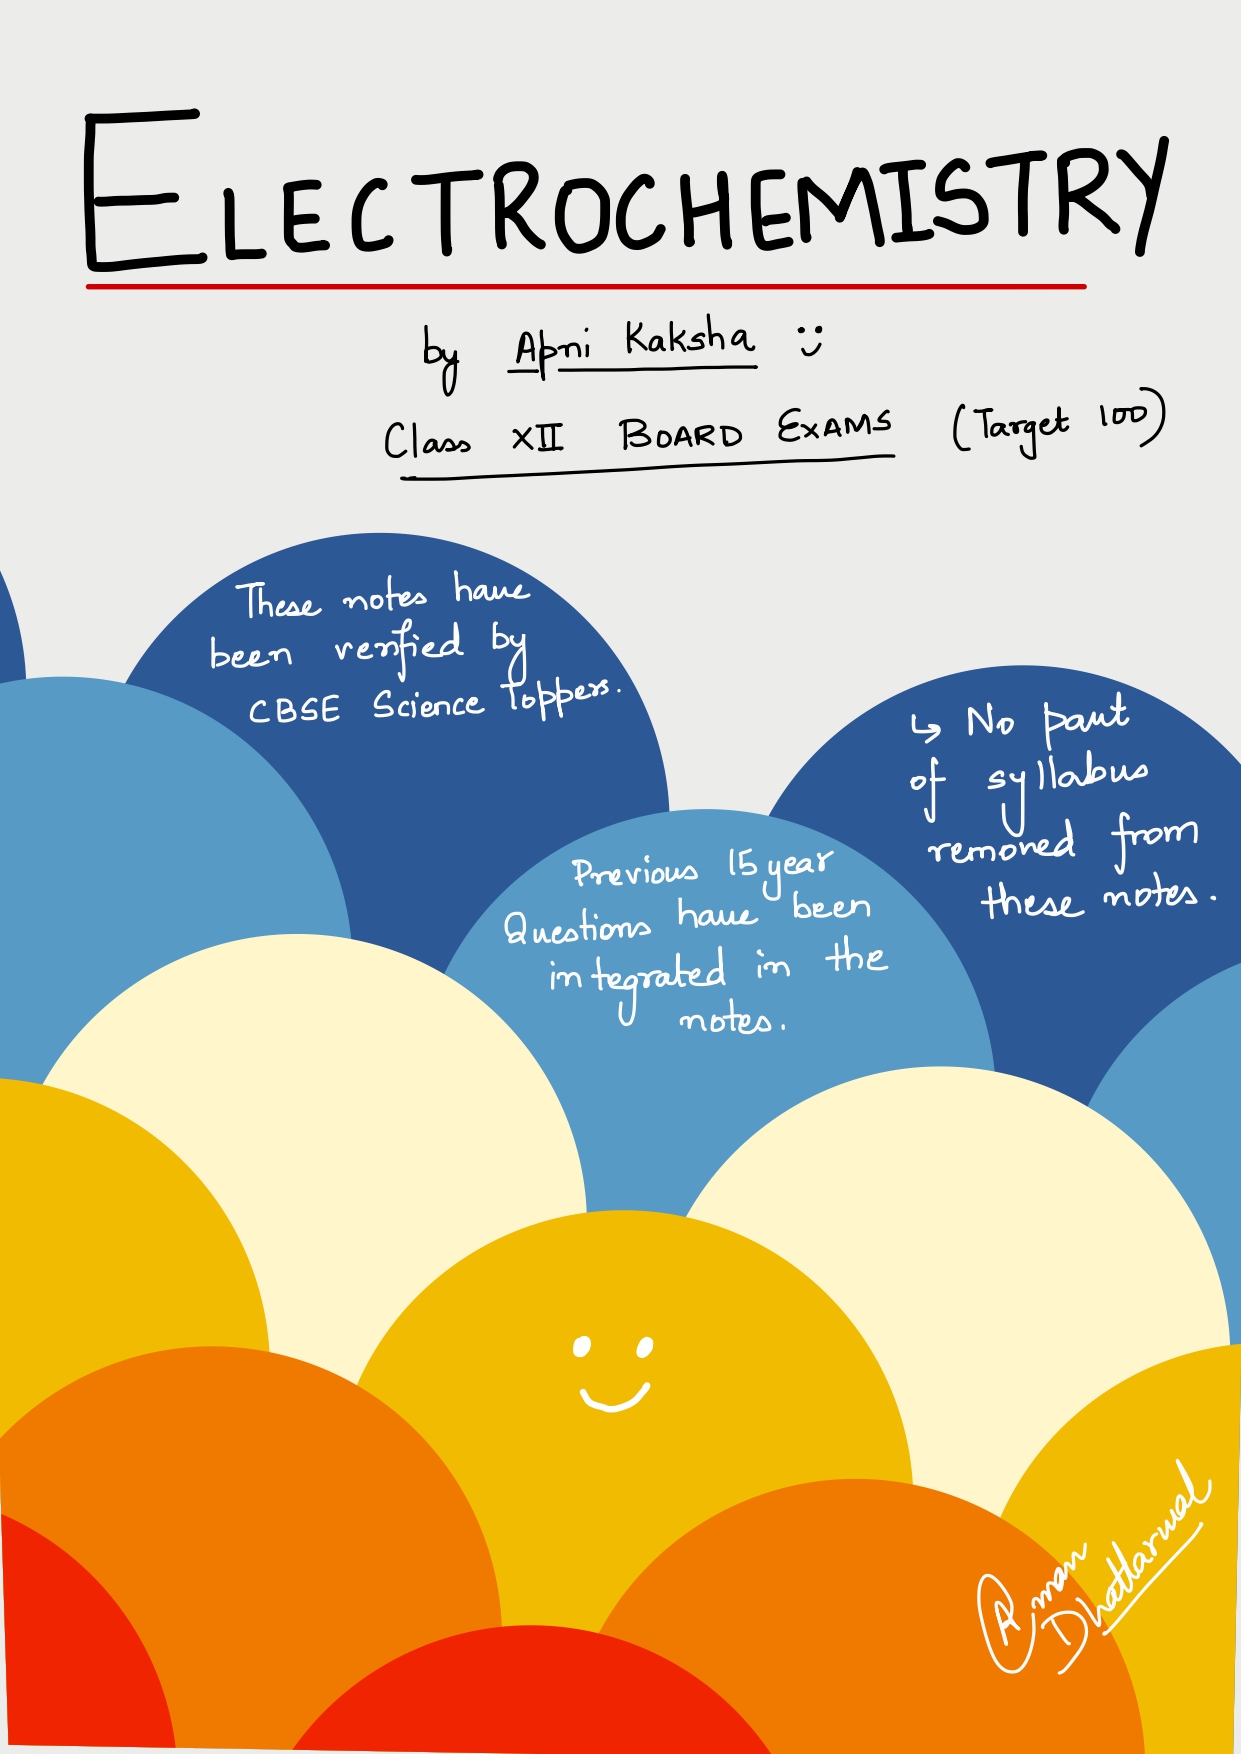 ELECTROCHEMISTRY
by Apni Kaksha
Class XII BOARD EXAMS (Target 100)
These notes have
been verified by
CBSE Science toppers.
↳ No part
of syllabus
removed from
these notes.
Previous 15 year
Questions have been
integrated in the
notes.
Aman
Dhattarwal